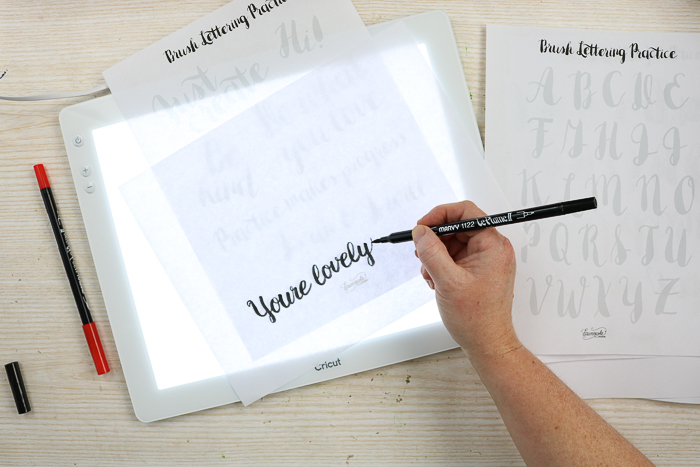 Brush Lettering Practice
Hi!
Just
create
you love
kind
Practice makes progress
Youre lovely
cricut
MARVY 1122 Le Plume II
Brush Lettering Practice
A B C D E
F G H I J
K L M N O
P Q R S T U
V W X Y Z